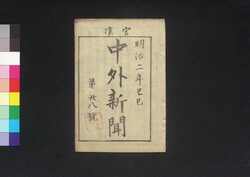 官準
明治二年己巳
中外新聞
第廿八號